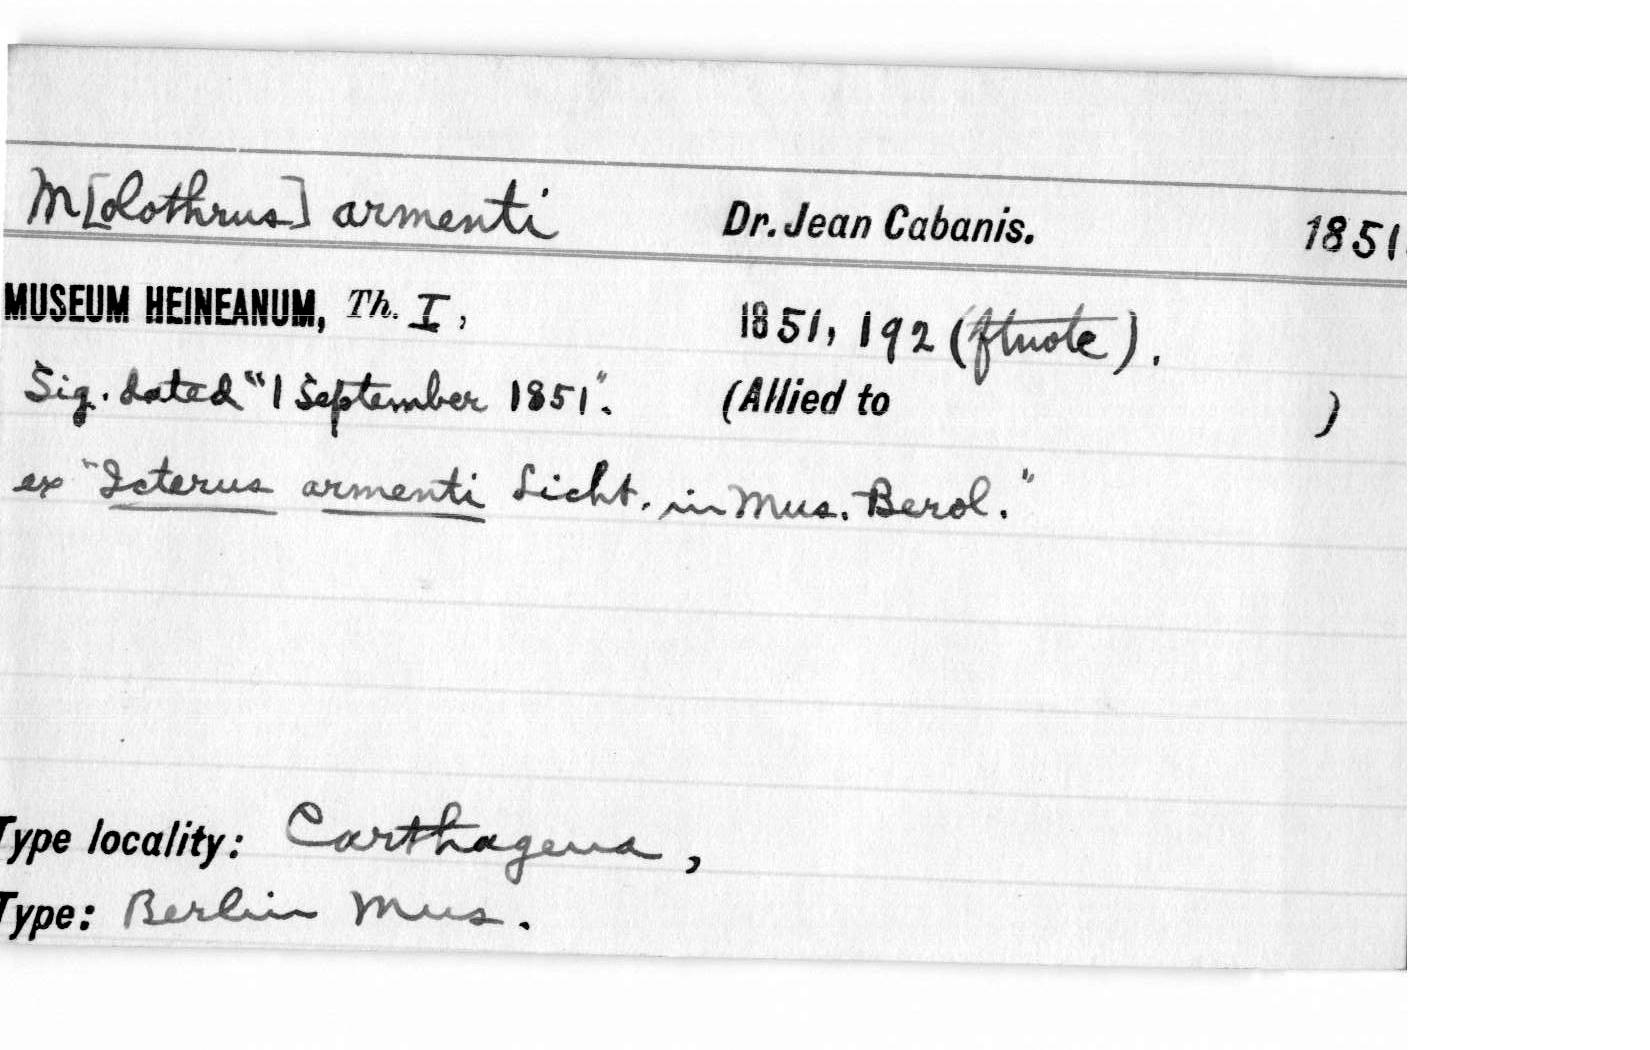 M[olothrus] armenti Dr. Jean Cabanis. 1851.
MUSEUM HEINEANUM, Th. I, 1851, 192 (ftnote).
Sig. dated "1 September 1851". (Allied to )
ex "Icterus armenti Licht. in Mus. Berol."
Type locality: Carthagena,
Type: Berlin Mus.